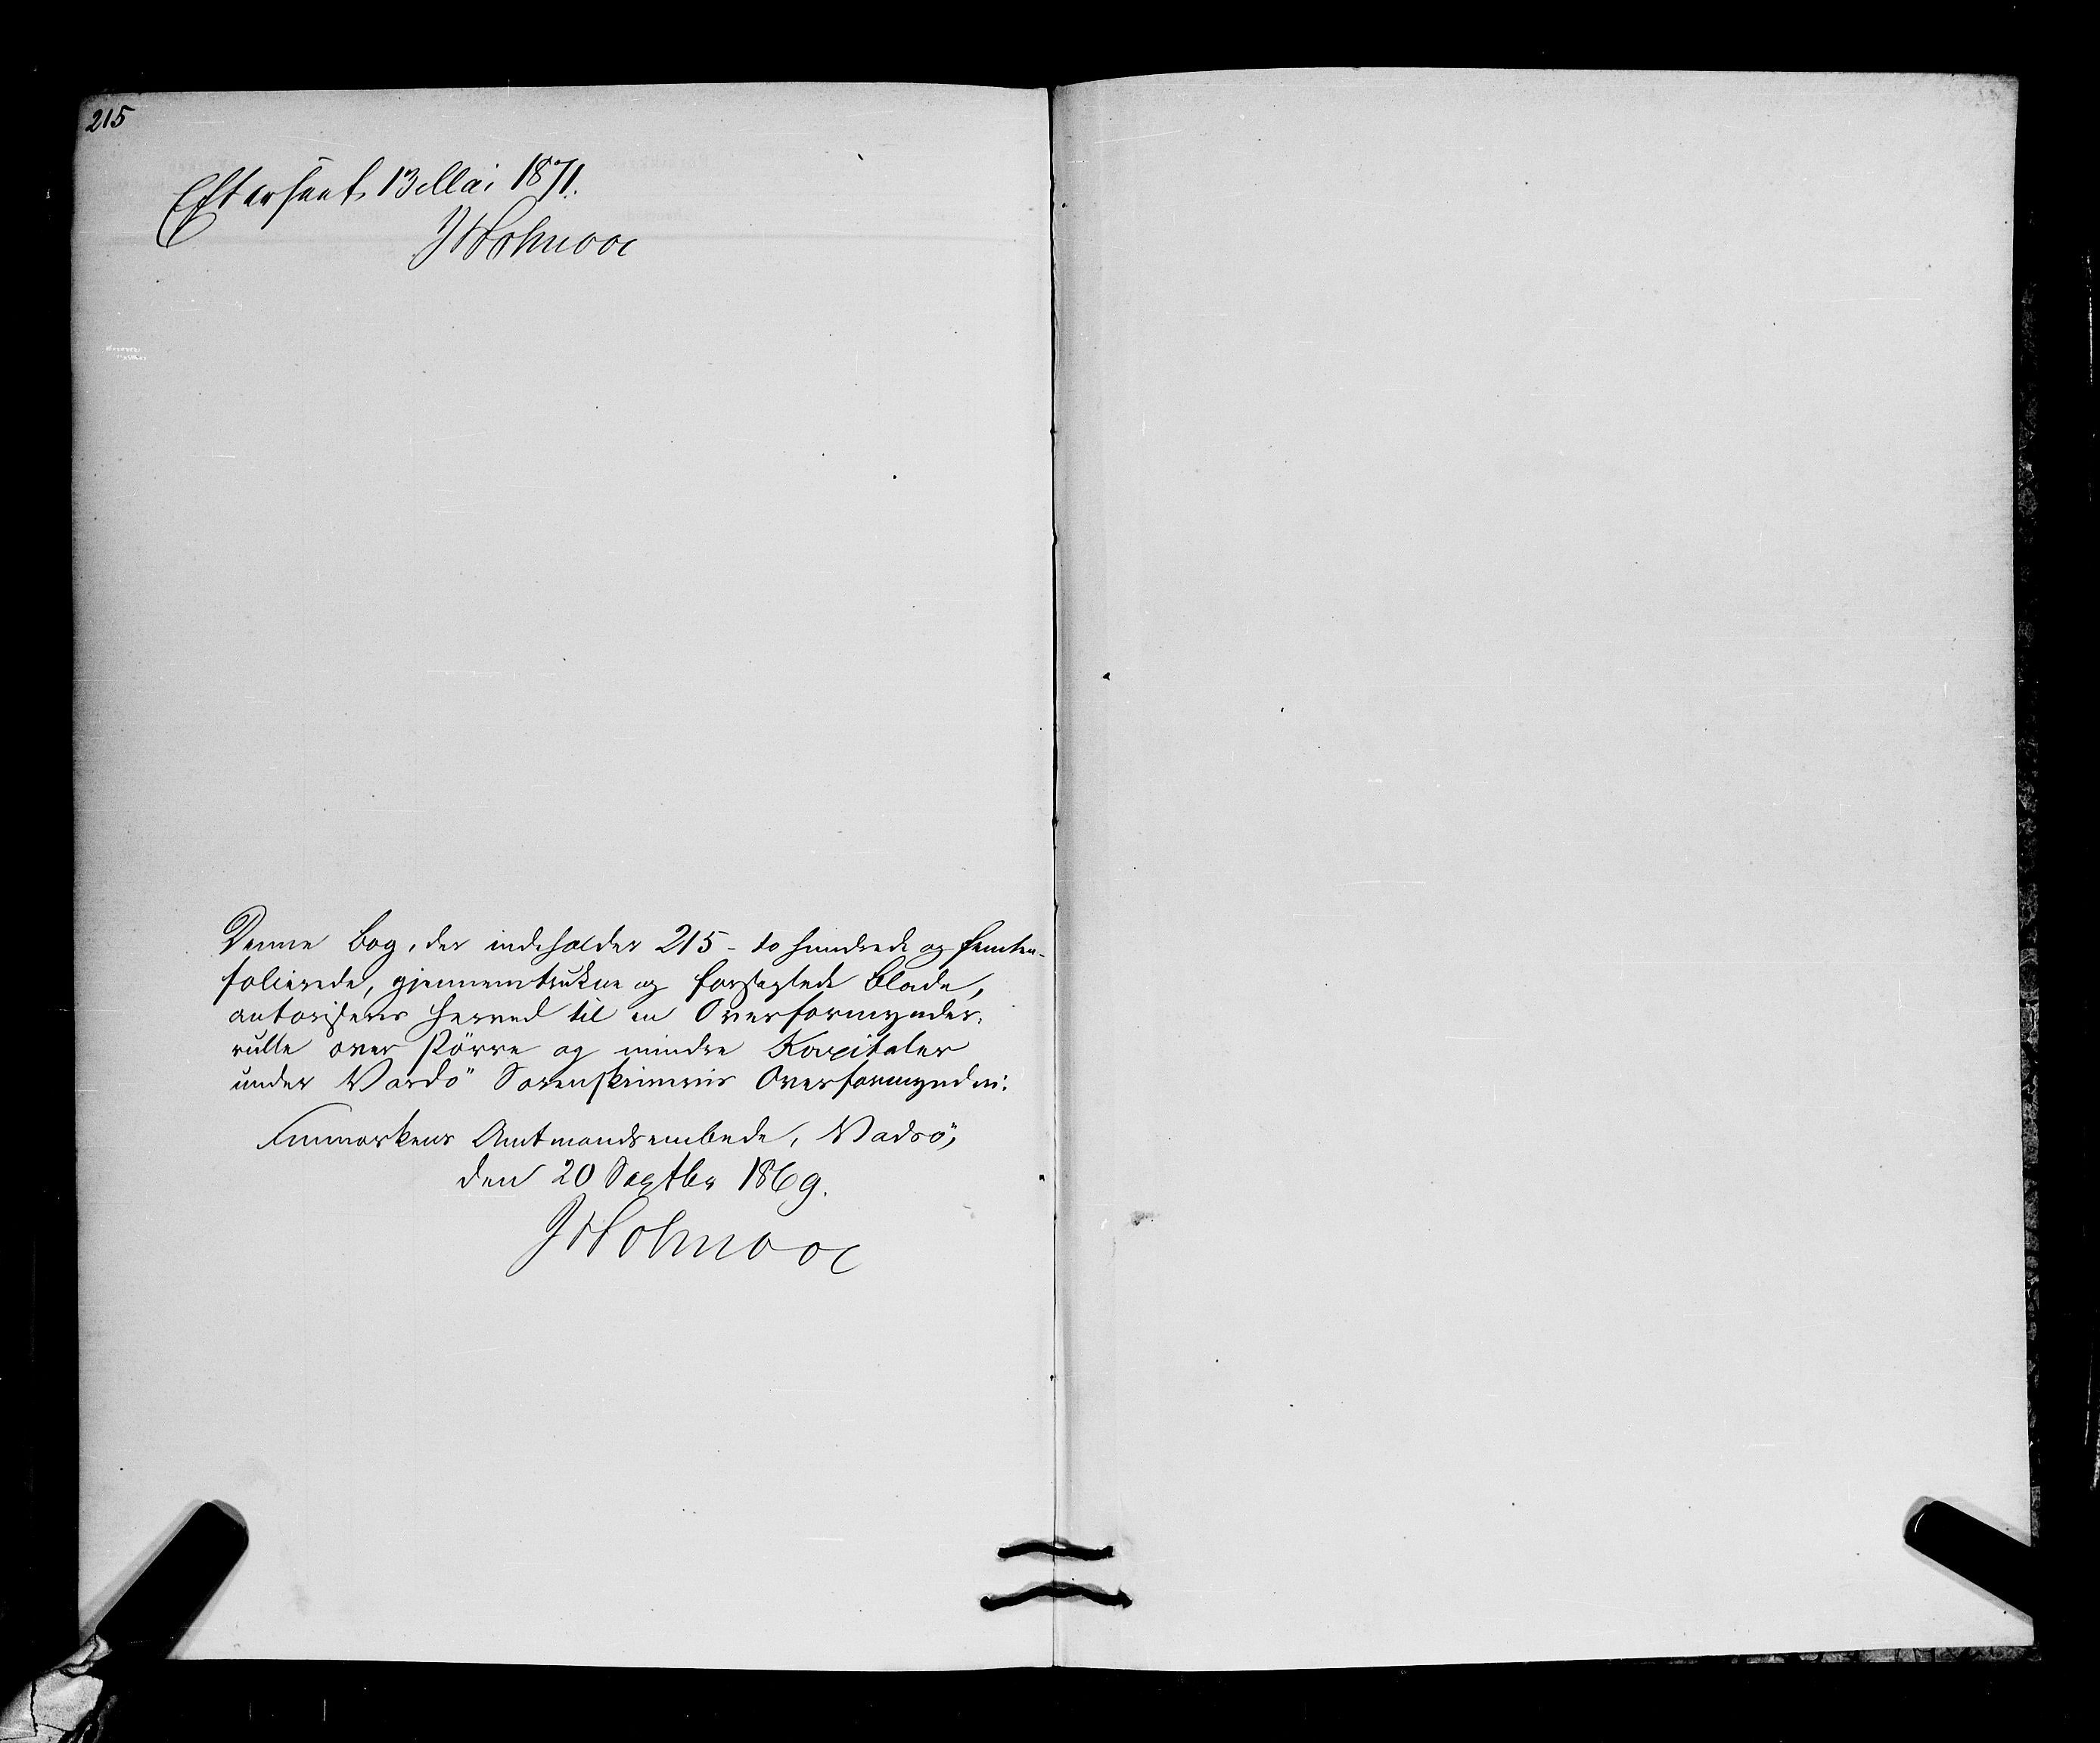 215
Efterseet 13 Mai 1871.
J Holmboe
Denne Bog, der indeholder 215 - to hundrede og femten -
folierede, gjennemtrukne og forseglede Blade,
autoriseres herved til en Overformynder-
rulle over större og mindre Kapitaler
under Vardö Sorenskriveries Overformynderi.
Finmarkens Amtmandsembede, Vadsö,
den 20 Septbr 1869.
J Holmboe